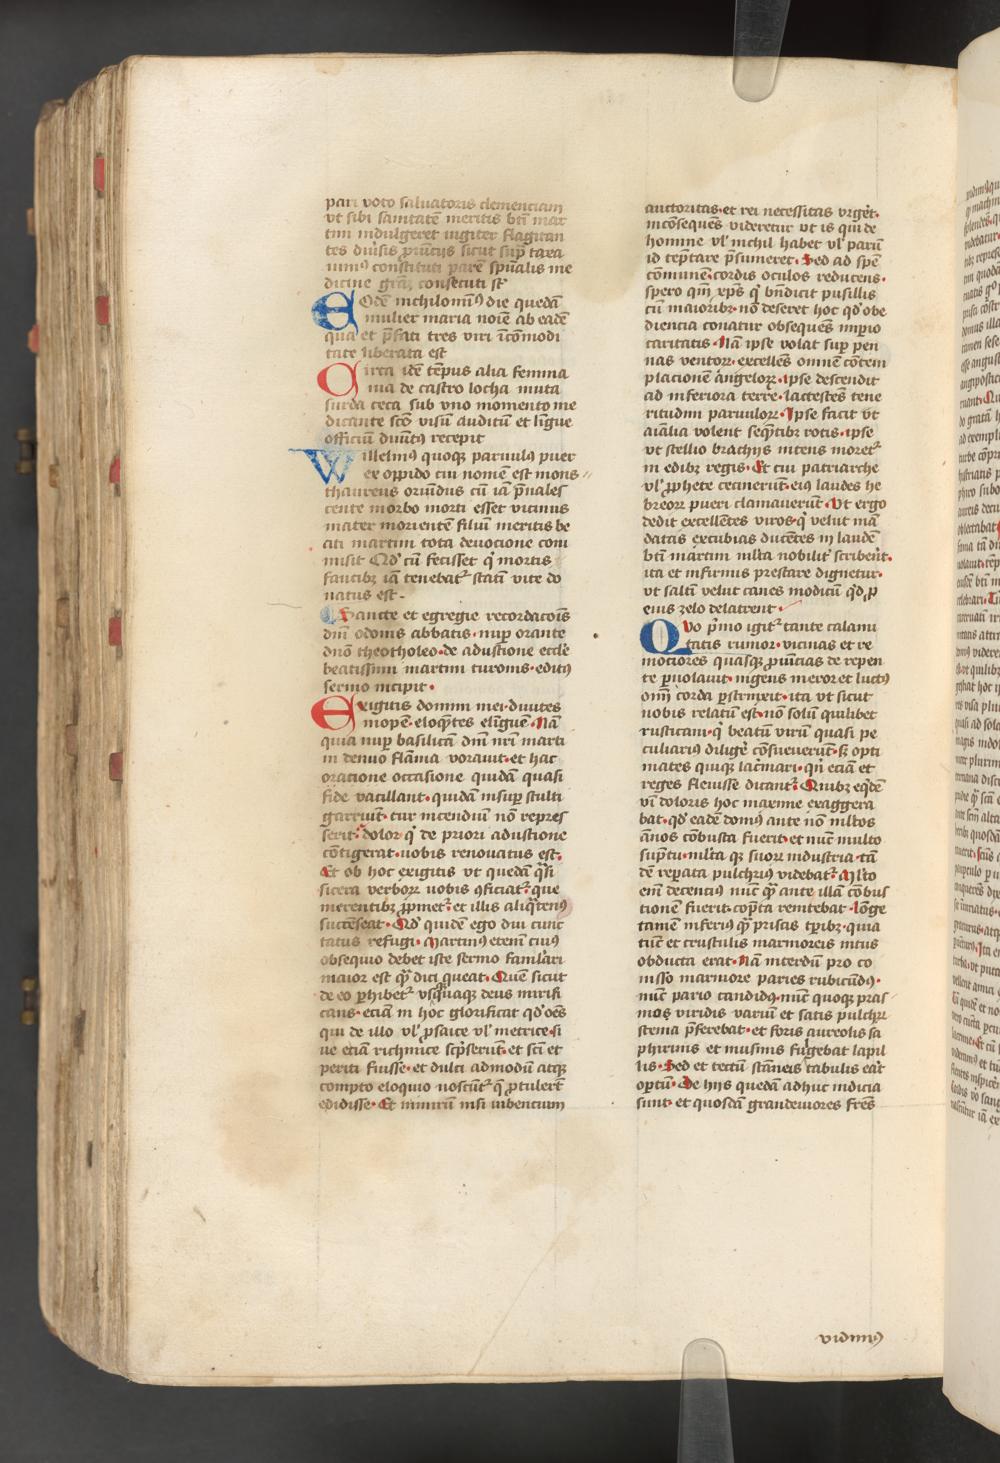 pari voto saluatoris clemenciam
vt sibi sanitatē meritis bt̄i mar
tini indulgeret iugiter flagitan
tes diu̓sis ꝓuīcijs sicut sup̄ taxa
uimꝰ constituti parē sp̄ualis me
dicine grāꝫ consecuti st̄
Eodē nichilomīꝰ die quedā
mulier maria noīe ab eadē
qua et p̄fati tres viri īcōmodi
tate liberata est
Circa idē tēpus alia femina
nia de castro locha muta
surda ceca sub vno momento me
dicante scō visū auditū et ligue
officiū diuītꝰ recepit
Willelmꝰ quoqꝫ paruulꝰ puer
ex oppido cui nomē est mons
thaureus oriūdus cū iā p̄uales
cente morbo morti esset vicinus
mater morientē filiū meritis be
ati martini tota deuocione com
misit Qd̓ cū fecisset q̓ mortis
faucibꝫ iā tenebat᷑ statī vite do
natus est.
Sancte et egregie recordacōīs
dn̄i odonis abbatis. nup̄ orante
dn̄o theotholeo. de adustione eccl̓e
beatissimi martini turonis. editꝰ
sermo incipit.
Exigitis domini mei. diuites
inopē. eloq̄ntes elīguē. Nā
quia nup̄ basilicā dn̄i nr̄i marti
ni denuo flāma vorauit. et hac
oratione occasione quidā quasi
fide vacillant. quidā insup̄ stulti
garriūt. cur incendiū nō repres
serit. dolor q̓ de priori adustione
cōtigerat. uobis renouatus est.
Et ob hoc exigitis ut quedā q̄si
sicera verboꝝ uobis ꝯficiat᷑. que
merentibꝫ ꝓpinet᷑. et illis aliq̄tenꝰ
succēseat. Qd̓ quidē ego diu cunc
tatus refugi. Martinꝰ etenī cuiꝰ
obsequio debet iste sermo famlari
maior est q̄ꝫ dici queat. Quē sicut
de eo ꝓhibet᷑ vsq̄quaqꝫ deus mirifi
cans. eciā in hoc glorificat qd̓ oēs
qui de illo vl̓ ꝓsaice vl̓ metrice si
ue eciā richmice scp̄serūt. et sc̄i et
periti fuisse. et dulci admodū atqꝫ
compto eloquio noscūt᷑ q̄ ꝓtulerē
edidisse. Et nimirū nisi iubencium
auctoritas. et rei necessitas vrgēt.
incōsequēs videretur ut is qui de
homine vl̓ nichil habet vl̓ parū
id tēptare p̄sumeret. Sed ad spē
cōmunē. cordis oculos reducens.
spero qm̄ xp̄s q̓ bn̄dicit pusillis
cū maioribꝫ. nō deseret hoc qd̓ obe
diencia conatur obsequēs imꝑio
caritatis. Nā ipse volat sup̄ pen
nas ventoꝝ. excellēs omnē cōtem
placionē angeloꝝ. ipse descendit
ad inferiora terre. lactestēs tene
ritudini paruuloꝝ. Ipse facit vt
aīalia volent seq̄ntibꝫ rotis. ipse
ut stellio brachijs intens moret᷑
in edibꝫ regis. Et cui patriarche
vl̓ ꝓphete cecinerūt. eiꝰ laudes he
breoꝝ pueri clamauerūt. Vt ergo
dedit excellētes viros. q̓ velut mā
datas excubias ducētes in laudē
bt̄i martini ml̓ta nobilit̓ scriberēt.
ita et infirmis prestare dignetur.
vt saltī velut canes modicū qd̓ ꝓ
eius zelo delatrent.
Quo p̄mo igit᷑ tante calami
tatis rumor. vicinas et re
mociores quasqꝫ ꝓuīcias de repen
te ꝑuolauit. ingens meror et luctꝰ
oīm corda ꝑstrinxit. ita vt sicut
nobis relatū est. nō solū quilibet
rusticani. q̓ beatū virū quasi pe
culiariꝰ diligē cōsueuerūt. sꝫ opti
mates quiqꝫ lacrīmari. qn̓ eciā et
reges fleuisse dicant᷑. Quibꝫ eq̓dē
vī doloris hoc maxime exaggera
bat. qd̓ eadē domꝰ ante nō ml̓tos
ānos cōbusta fuerit. et nūc multo
sup̄tu. ml̓ta qꝫ suoꝝ industria. tā
dē reꝑata pulchriꝰ videbat᷑. Ml̓to
enī decentiꝰ nūc q̄ꝫ ante illā cōbus
tionē fuerit. coꝑta renitebat. lōge
tamē inferiꝰ q̄ꝫ priscis tꝑibꝫ. quia
tūc et crustulis marmoreis intus
obducta erat. Nā interdū pro co
nisso marmore paries rubicūdꝰ.
nūc pario candidꝰ. nūc quoqꝫ pras
inos viridis variū et satis pulchꝝ
stema p̄ferebat. et foris aureolis sa
phirinis et musinis fu̓gebat lapil
lis. Sed et tectū stāneis tabulis eāt
optū. De hijs quedā adhuc indicia
sunt. et quosdā grandeuiores fr̄es
vidimꝰ